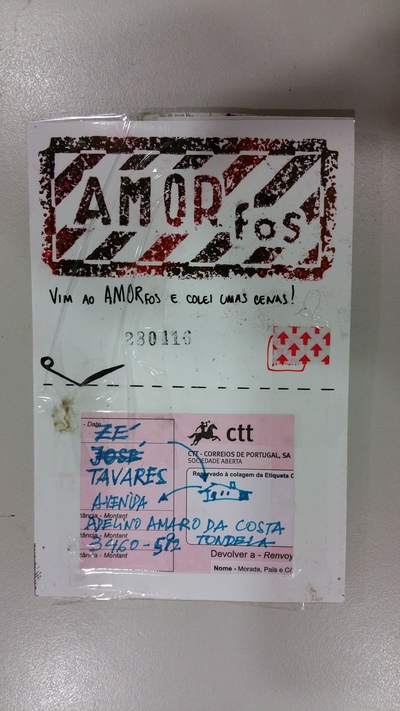 AMOR
FOS
VIM AO AMORFOS E COLEI UMAS CENAS!
280416
- Data
ZÉ
ctt
JOSÉ
CTT - CORREIOS DE PORTUGAL, SA
SOCIEDADE ABERTA
TAVARES
Reservado à colagem da Etiqueta C
AVENIDA
tância - Montant
ADELINO AMARO DA COSTA
tância - Montant
3460-592 TONDELA
tância - Montant
Devolver a - Renvoy
Nome - Morada, País e Có